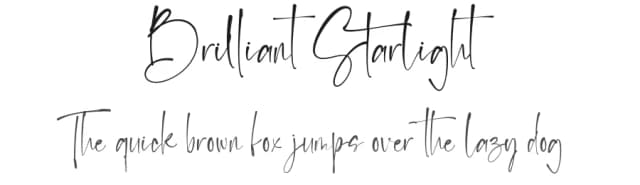 Brilliant Starlight
The quick brown fox jumps over the lazy dog